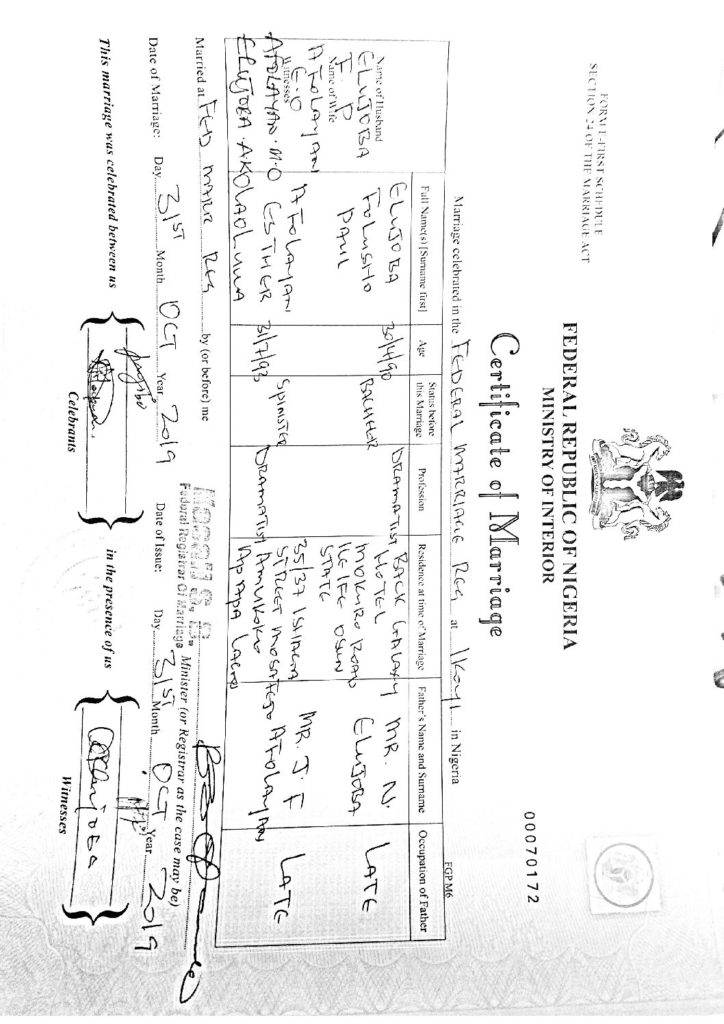 FORM E-FIRST SCHEDULE
SECTION 24 OF THE MARRIAGE ACT
FEDERAL REPUBLIC OF NIGERIA
MINISTRY OF INTERIOR
00070172
Certificate of Marriage
FGP M6
Marriage celebrated in the FEDERAL MARRIAGE REG at IKOYI in Nigeria
Full Name(s) [Surname first] Age Status before this Marriage Profession Residence at time of Marriage Father's Name and Surname Occupation of Father
Name of Husband
ELUJOBA
F. P
ELUJOBA
FOLUSHO
PAUL
30/4/90
BACHELOR
DRAMATIST
BACK GALAXY
HOTEL
MOKURO ROAD
ILE IFE OSUN
STATE
MR. N.
ELUJOBA
LATE
Name of Wife
AFOLAYAN
E. O
AFOLAYAN
ESTHER
31/7/93
SPINSTER
DRAMATIST
35/37 ISHAGA
STREET
AMUKOKO
APAPA LAGOS
MR. J. F
AFOLAYAN
LATE
Witnesses
AFOLAYAN. M. O
ELUJOBA.
Married at FED MARR REG by (or before) me
Federal Registrar Of Marriage
Minister (or Registrar as the case may be)
Date of Marriage: Day 31ST Month OCT Year 2019 Date of Issue: Day 31ST Month OCT Year 2019
This marriage was celebrated between us
Celebrants
in the presence of us
Witnesses